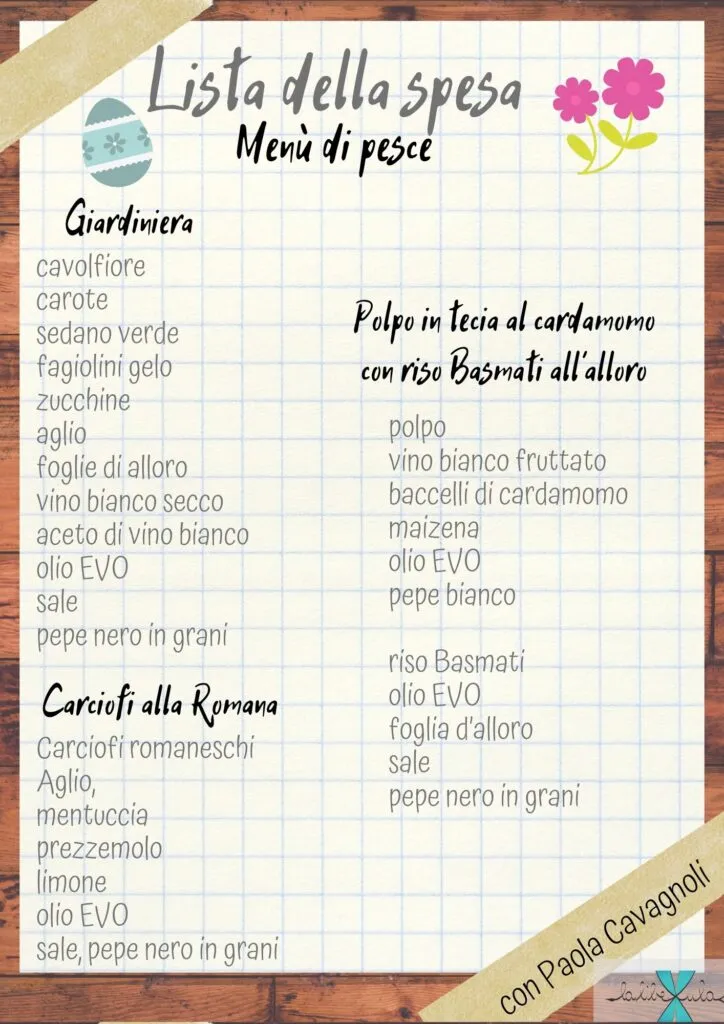 Lista della spesa
Menù di pesce
Giardiniera
cavolfiore
carote
sedano verde
fagiolini gelo
zucchine
aglio
foglie di alloro
vino bianco secco
aceto di vino bianco
olio EVO
sale
pepe nero in grani
Carciofi alla Romana
Carciofi romaneschi
Aglio,
mentuccia
prezzemolo
limone
olio EVO
sale, pepe nero in grani
Polpo in tecia al cardamomo
con riso Basmati all'alloro
polpo
vino bianco fruttato
baccelli di cardamomo
maizena
olio EVO
pepe bianco
riso Basmati
olio EVO
foglia d'alloro
sale
pepe nero in grani
con Paola Cavagnoli